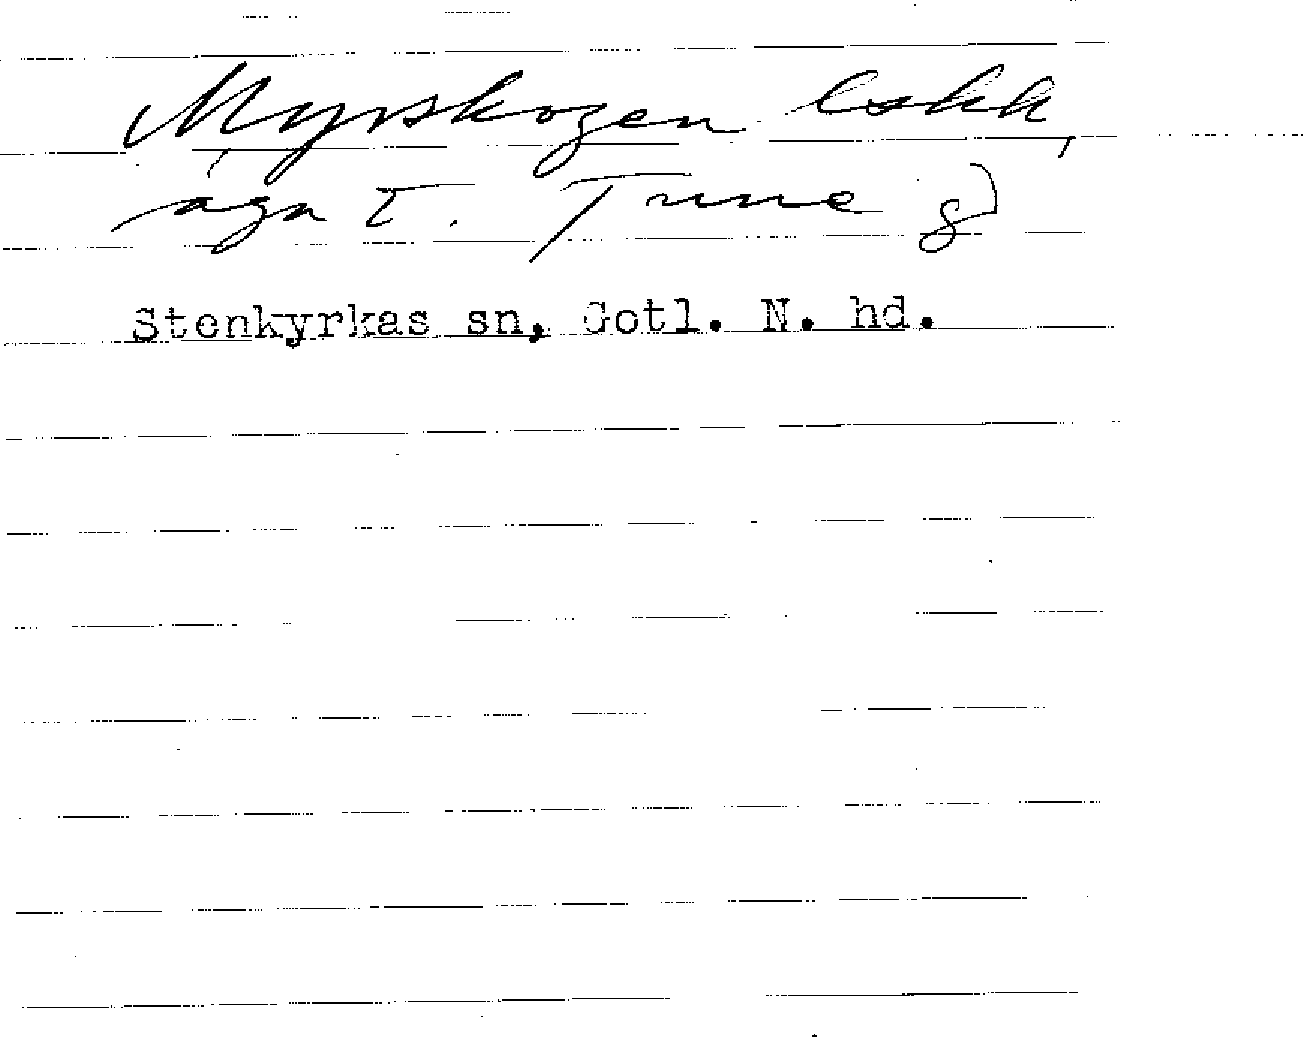 Myrskogen
äga t. Trune gd
Stenkyrkas sn, Gotl. N. hd.